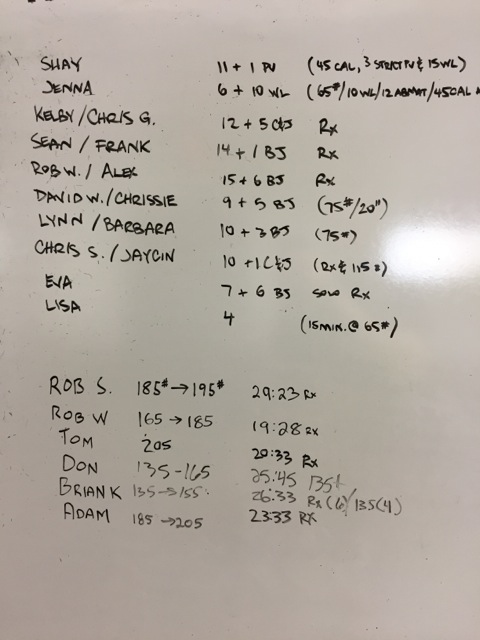 SHAY 11 + 1 PU (45 CAL, 3 STRICT PU & 15 WL)
JENNA 6 + 10 WL (65#/10 WL/12 ABMAT/45 CAL
KELBY/CHRIS G. 12 + 5 C&J Rx
SEAN / FRANK 14 + 1 BJ Rx
ROB W. / ALEX 15 + 6 BJ Rx
DAVID W./CHRISSIE 9 + 5 BJ (75#/20")
LYNN / BARBARA 10 + 3 BJ (75#)
CHRIS S. / JAYCIN 10 + 1 C&J (Rx & 115#)
EVA 7 + 6 BJ SOLO Rx
LISA 4 (15 MIN. @ 65#)
ROB S. 185# → 195# 29:23 Rx
ROB W 165 → 185 19:28 Rx
TOM 205 20:33 Rx
DON 135-165 25:45 135#
BRIAN K 135 → 155 26:33 Rx (6)/135(4)
ADAM 185 → 205 23:33 RX